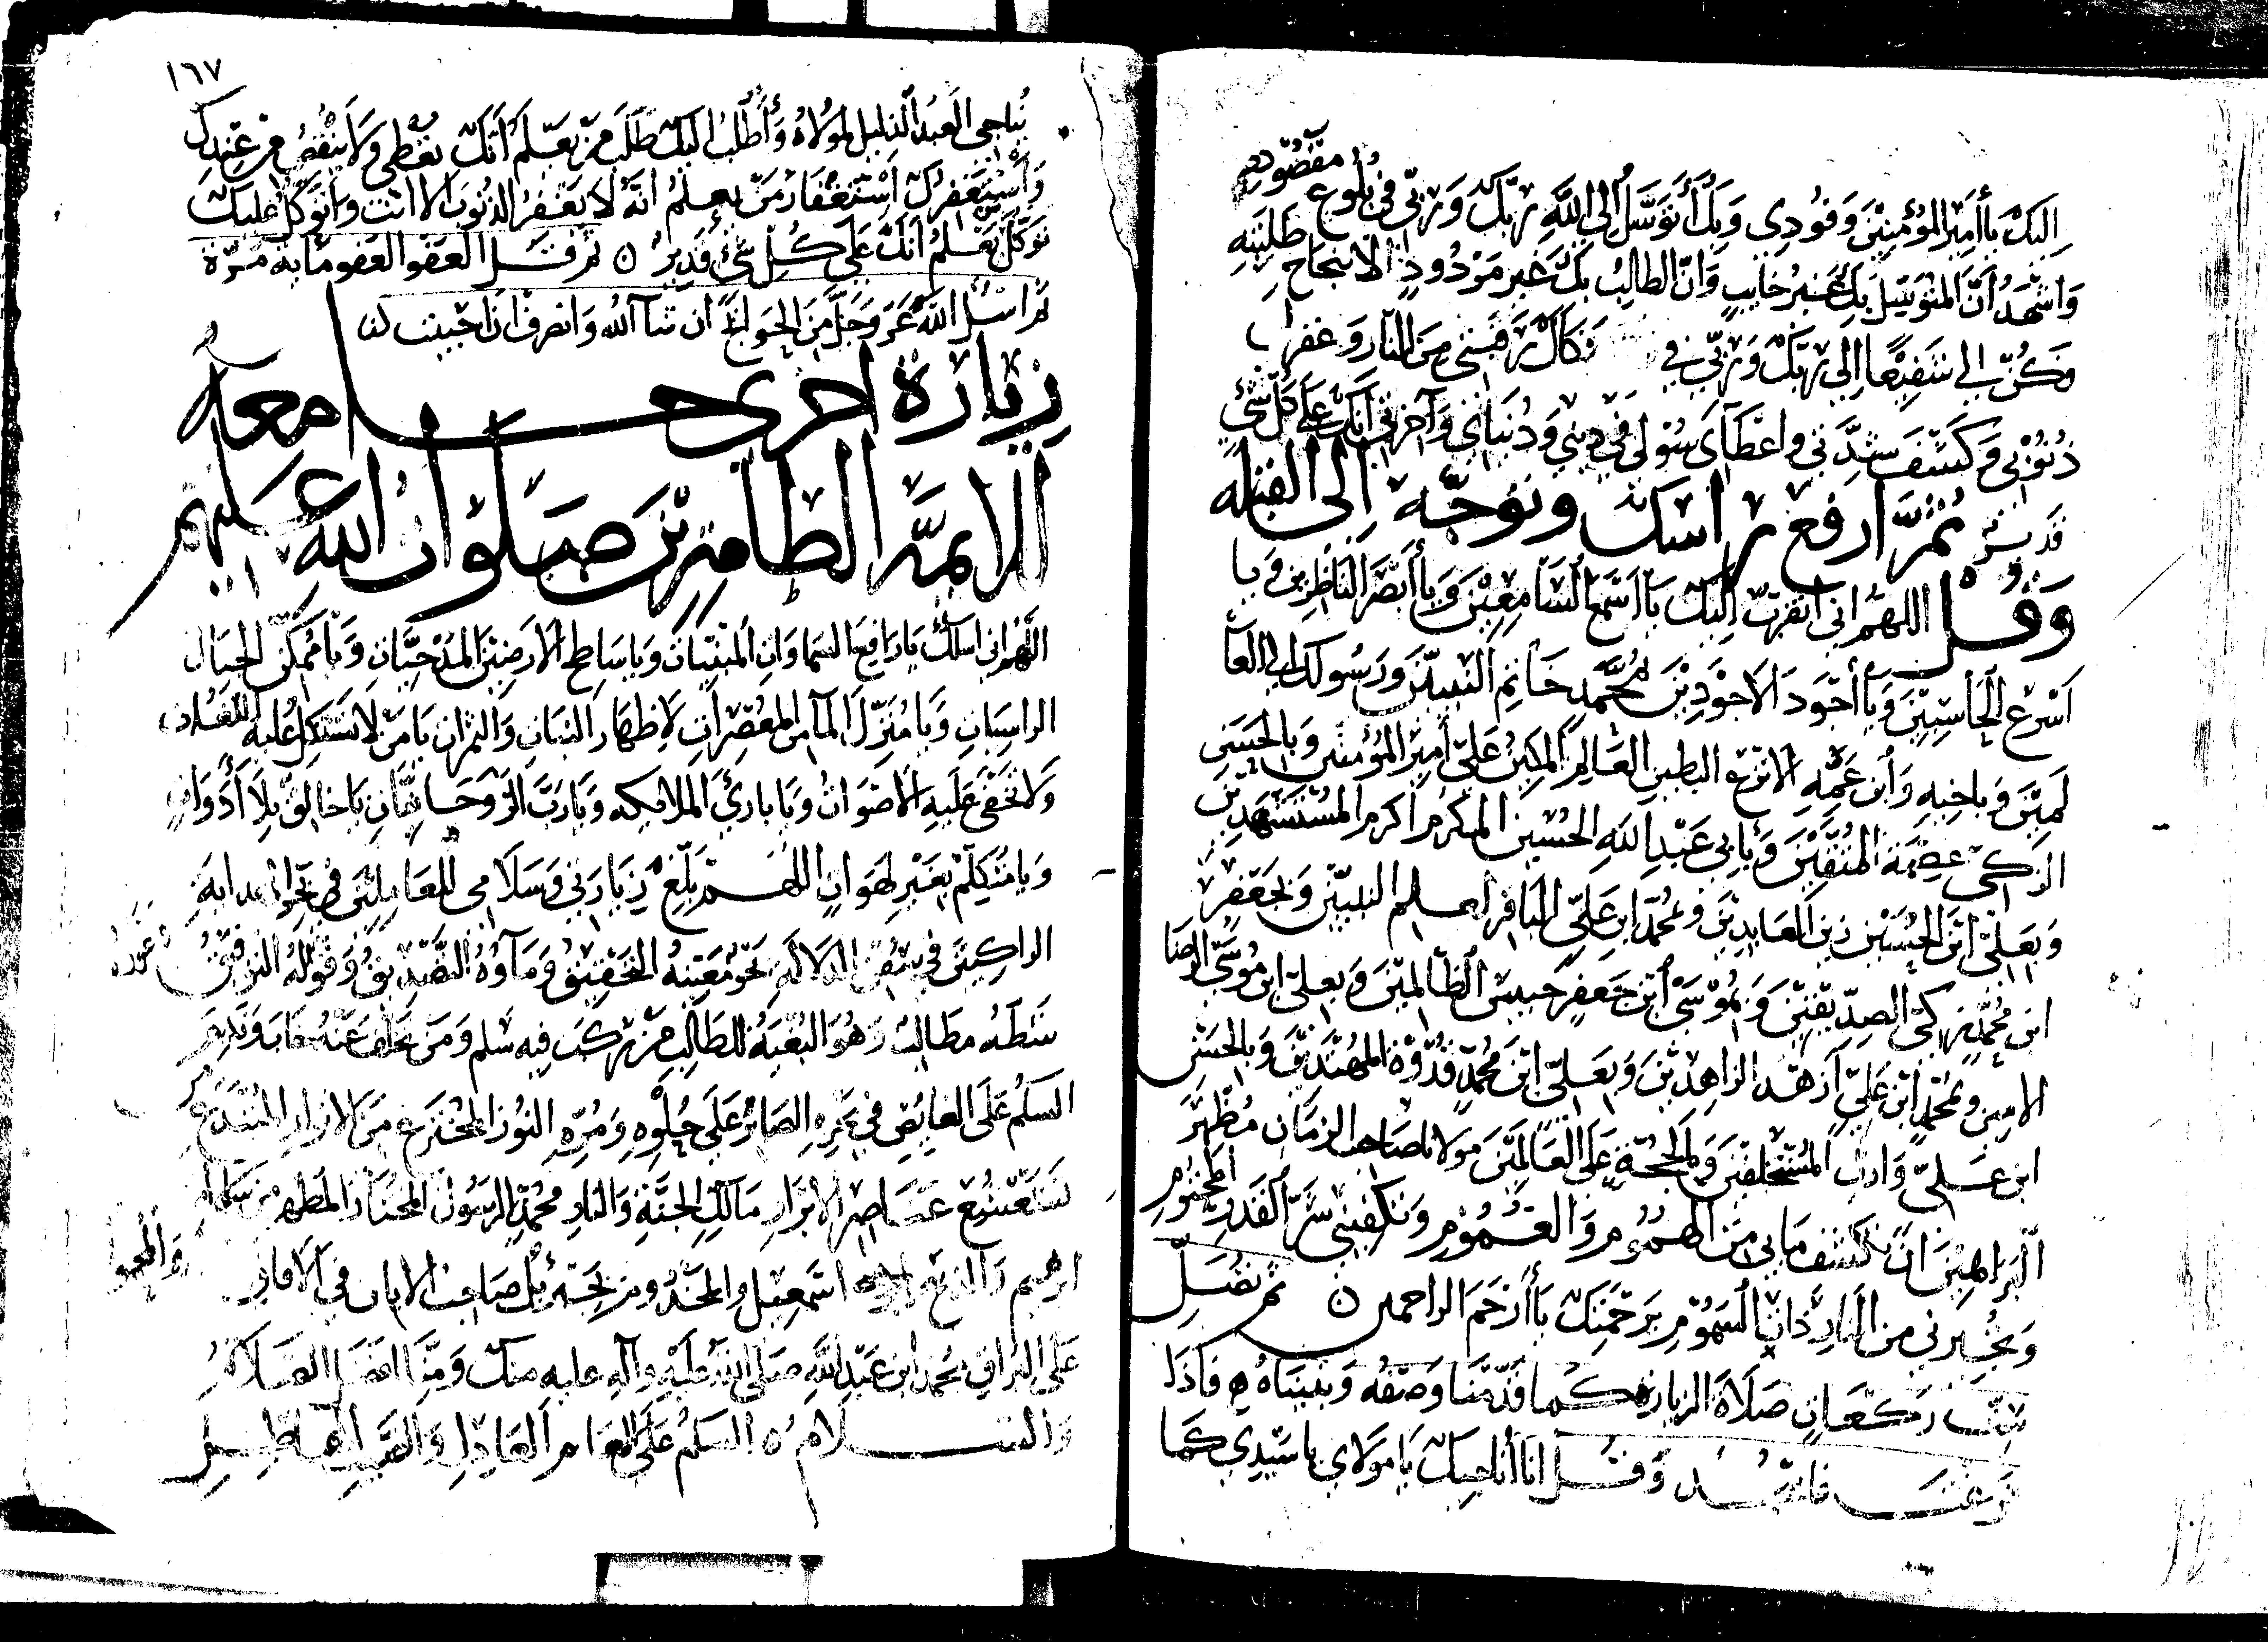 مقصودي
اليك يا أمير المؤمنين وفودي وبك أتوسل الى الله ربك وربي في بلوغ
واشهد أن المتوسل بك غير خايب وان الطالب بك غير مردود الا بنجاح طلبته
فكن لي شفيعا الى ربك وربي في فكاك رقبتي من النار وغفران
ذنوبي وكشف شدتي واعطاي سولي في ديني ودنياي وآخرتي انك على كل شي
قدير ثم ارفع راسك وتوجه الى القبله
وقل اللهم اني اتقرب اليك يا اسمع السامعين ويا أبصر الناظرين ويا
اسرع الحاسبين ويا أجود الاجودين بمحمد خاتم النبيين ورسولك الى العا
لمين وباخيه وابن عمه الانزع البطين العالم المكين علي أمير المؤمنين وبالحسن
الزكي عصمة المتقين وبابي عبد الله الحسين المكرم اكرم المستشهدين
وبعلي ابن الحسين زين العابدين وبمحمد ابن علي الباقر لعلم النبيين وبجعفر
ابن محمد زكي الصديقين وبموسى ابن جعفر حبيس الظالمين وبعلي ابن موسى الرضا
الامين وبمحمد ابن علي أزهد الزاهدين وبعلي ابن محمد قدوة المهتدين وبالحسن
ابن علي وارث المستخلفين وبالحجة على العالمين مولانا صاحب الزمان مظهر
البراهين ان تكشف ما بي من الهموم والغموم وتكفيني شر القدر المحتوم
وتجيرني من النار ذات السموم برحمتك يا أرحم الراحمين ثم تصل
ست ركعات صلاة الزيارة كما قدمنا وصفه وبيناه فاذا
فرغت وقل انا أناجيك يا مولاي يا سيدي كما
١٦٧
يناجي العبد الذليل لمولاه وأطلب اليك طلب من يعلم أنك تعطي ولا ينقص من عندك
واستغفرك استغفار من يعلم انه لا يغفر الذنوب الا انت واتوكل عليك
توكل من يعلم انك على كل شيء قدير ثم قل العفو العفو مايه مرة
ثم اسل الله عز وجل من الحوائج ان شآ الله وانصرف اذا احببت
زيارة اخرى جامعه
للايمة الطاهرين صلوات الله عليهم
اللهم اني اسلك يا رافع السماوات المبنيات ويا ساطح الارضين المدحيات ويا ممكن الجبال
الراسيات ويا منزل المآ من المعصرات لاظهار النبات والثمرات يا من لا تستشكل عليه اللغات
ولا تخفى عليه الاصوات ويا باريء الملائكه ويا رب الروحانيات يا خالق بلا أدوات
ويا متكلم بغير لهوات اللهم بلغ زيارتي وسلامي للعاملين في
الراكبين في سفن الدلالة نحو معينه التحقيق ومآوه التصديق وقوله التوفيق
مطالب وهو البغية للطالب من ركب فيه سلم ومن تخلف عنه خاب وندم
السلم على الغايص في بحره الصابر على حلوه ومره النور المخترع من الانوار المبتدع
عناصر الابرار مالك الجنة والنار محمد الرسول المختار المطهر
ابرهيم اسمعيل صاحب الايات في الافاق
على البراق محمد ابن عبد الله صلى الله عليه وآله عليه منك ومنا افضل الصلاة
والسلام السلم على الامام العادل